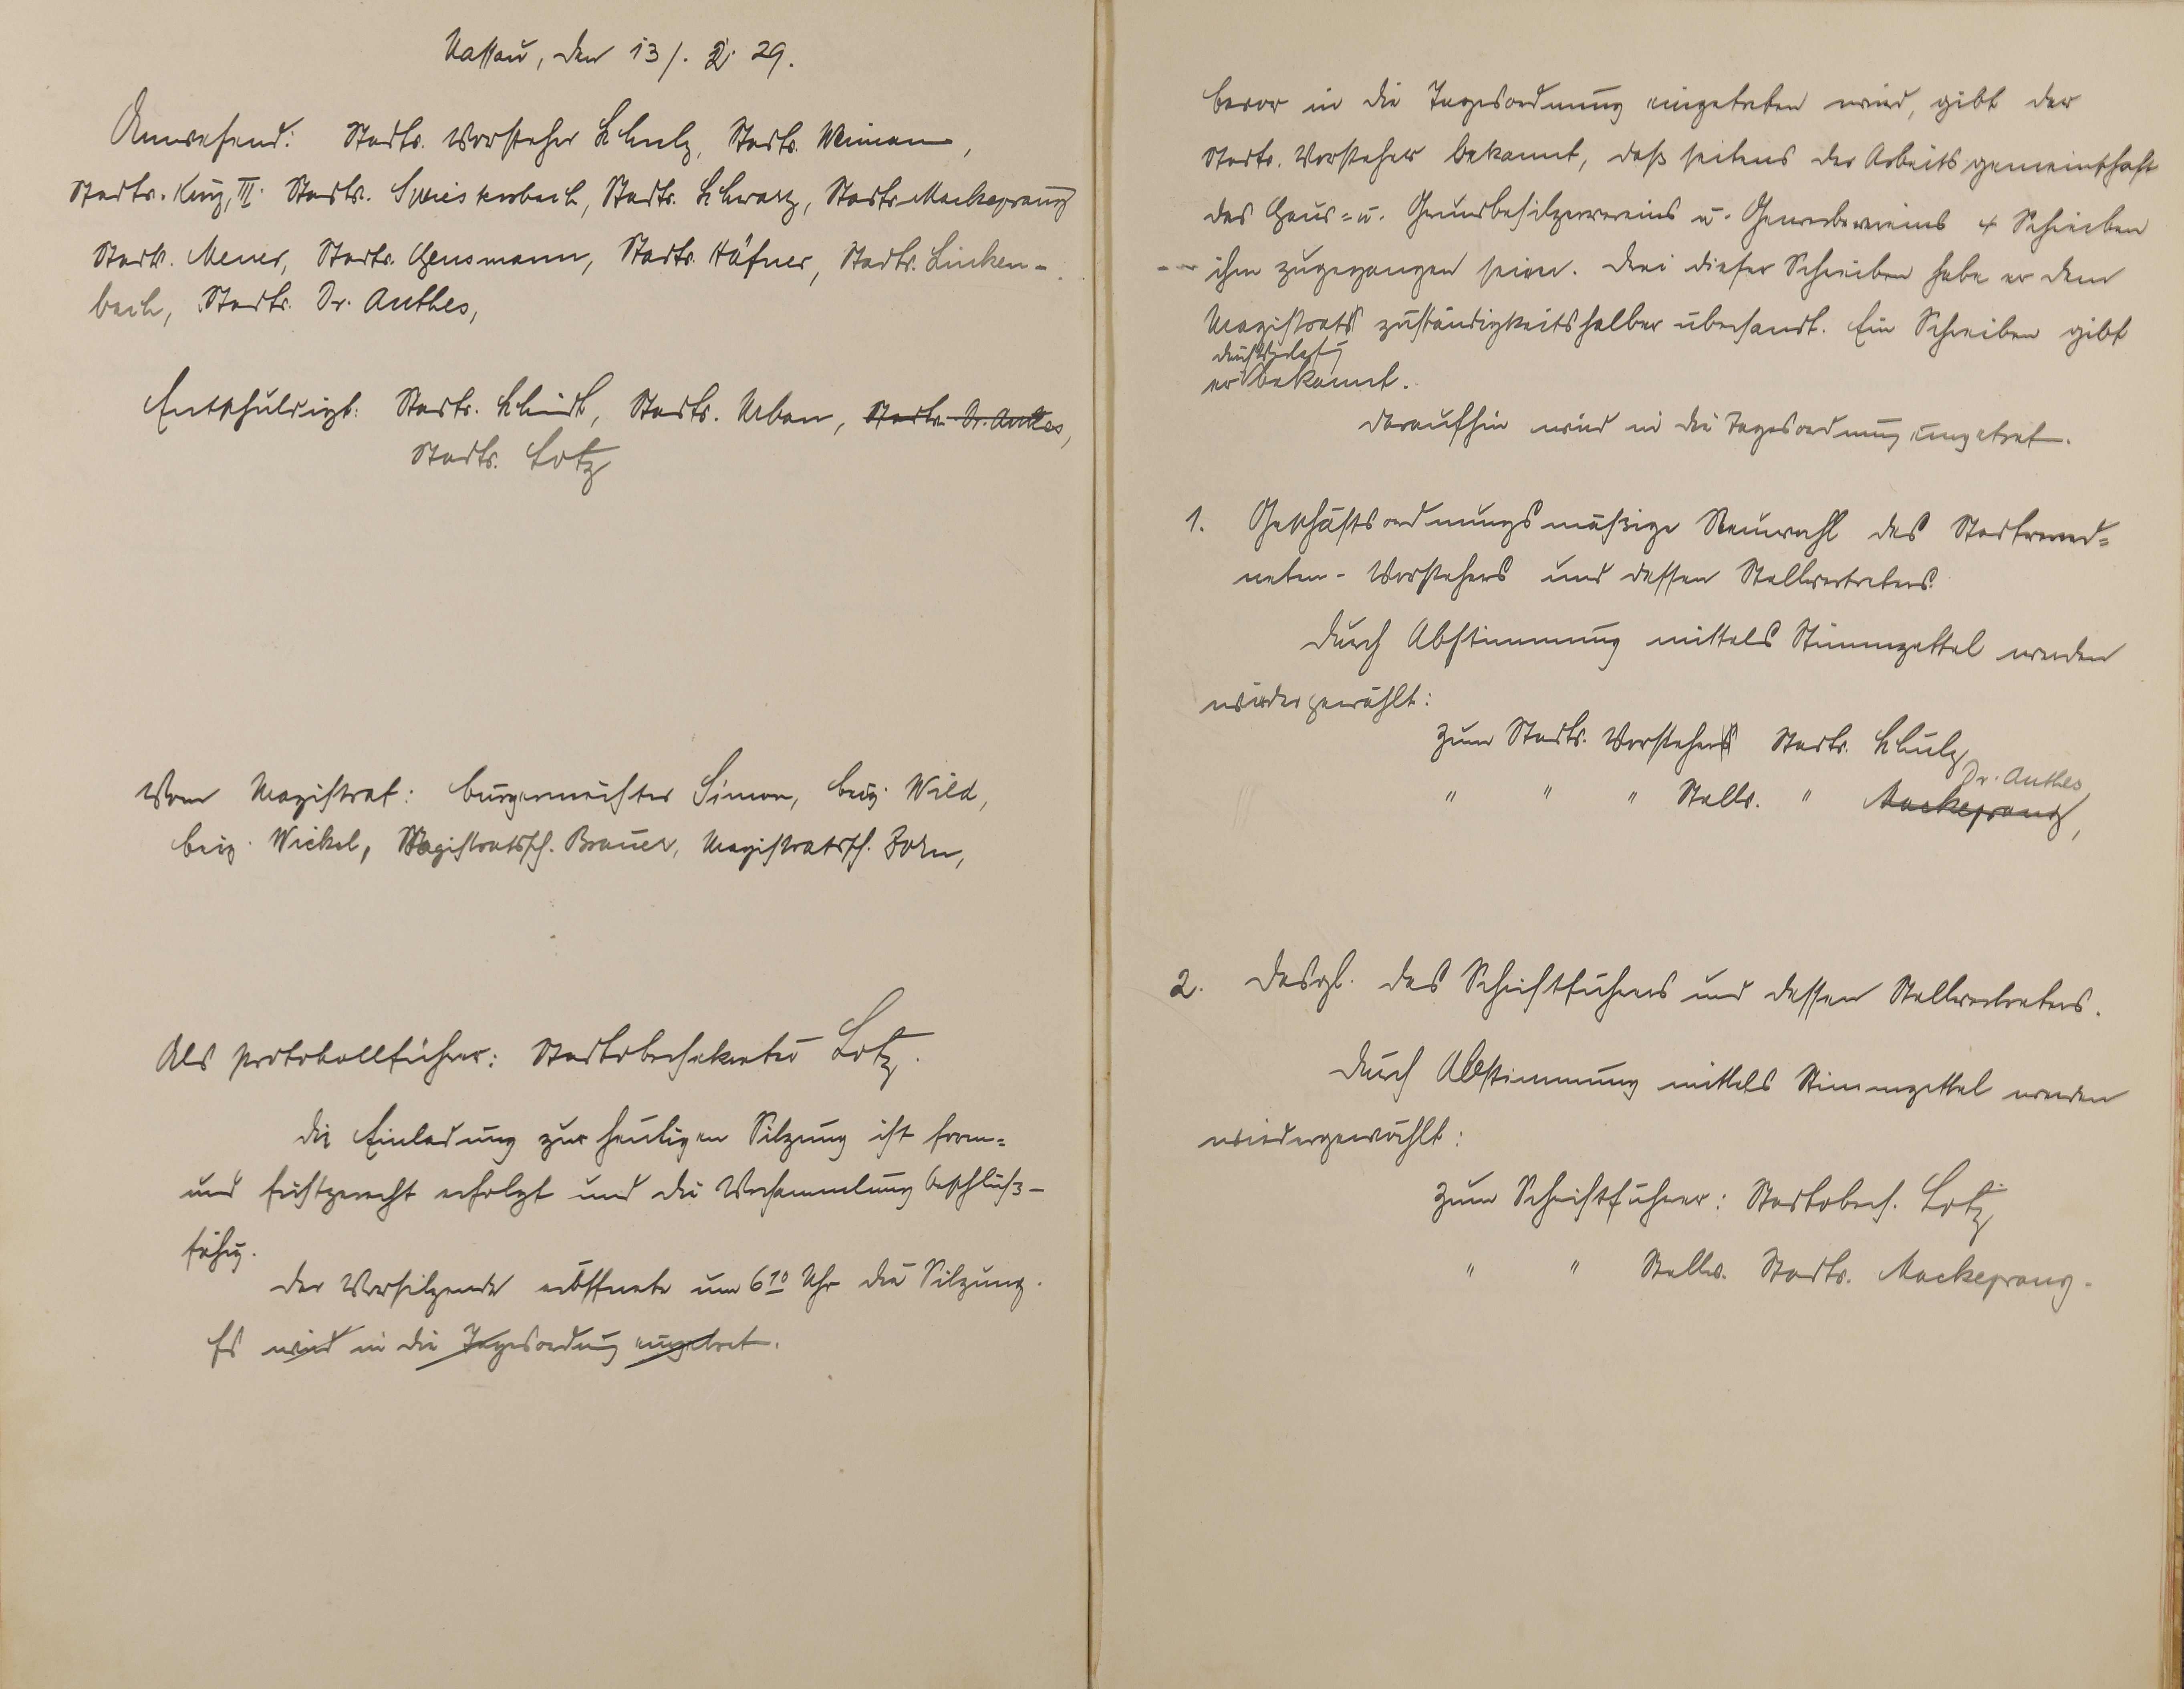 Nassau, den 13/. 2. 29.
Anwesend: Stadtv. Vorsteher Schulz, Stadtv. Weimann,
Stadtv. King, III. Stadtv. Spriestersbach, Stadtv. Schwarz, Stadtv. Mackeprang
Stadtv. Meuer, Stadtv. Gensmann, Stadtv. Häfner, Stadtv. Linken-
bach, Stadtv. Dr. Anthes,
Entschuldigt: Stadtv. Schmidt, Stadtv. Urban, Stadtv. Dr. Anthes,
Stadtv. Lotz
Vom Magistrat: Bürgermeister Simon, Beig. Wild,
Beig. Nickel, Magistratssch. Brauer, Magistratssch. Zorn,
Als Protokollführer: Stadtobersekretär Lotz.
Die Einladung zur heutigen Sitzung ist form=
und fristgerecht erfolgt und die Versammlung beschluß-
fähig.
Der Vorsitzende eröffnete um 6 10 Uhr die Sitzung.
Es wird in die Tagesordnung eingetret.
Bevor in die Tagesordnung eingetreten wird, gibt der
Stadtv. Vorsteher bekannt, daß seitens der Arbeitsgemeinschaft
des Haus= u. Grundbesitzervereins u. Gewerbevereins 4 Schreiben
ihm zugegangen seien. Drei dieser Schreiben habe er dem
Magistrats zuständigkeitshalber übersandt. Ein Schreiben gibt
durch Verlesung
er bekannt.
Daraufhin wird in die Tagesordnung eingetret.
1. Geschäftsordnungsmäßige Neuwahl des Stadtverord=
neten-Vorstehers und dessen Stellvertreters.
Durch Abstimmung mittels Stimmzettel werden
wiedergewählt:
Zum Stadtv. Vorstehers Stadtv. Schulz
Dr. Anthes
" " " Stellv. " Mackeprang,
2. Desgl. des Schriftführers und dessen Stellvertreters.
Durch Abstimmung mittels Stimmzettel werden
wiedergewählt:
Zum Schriftführer: Stadtobers. Lotz
" " Stellv. Stadtv. Mackeprang.